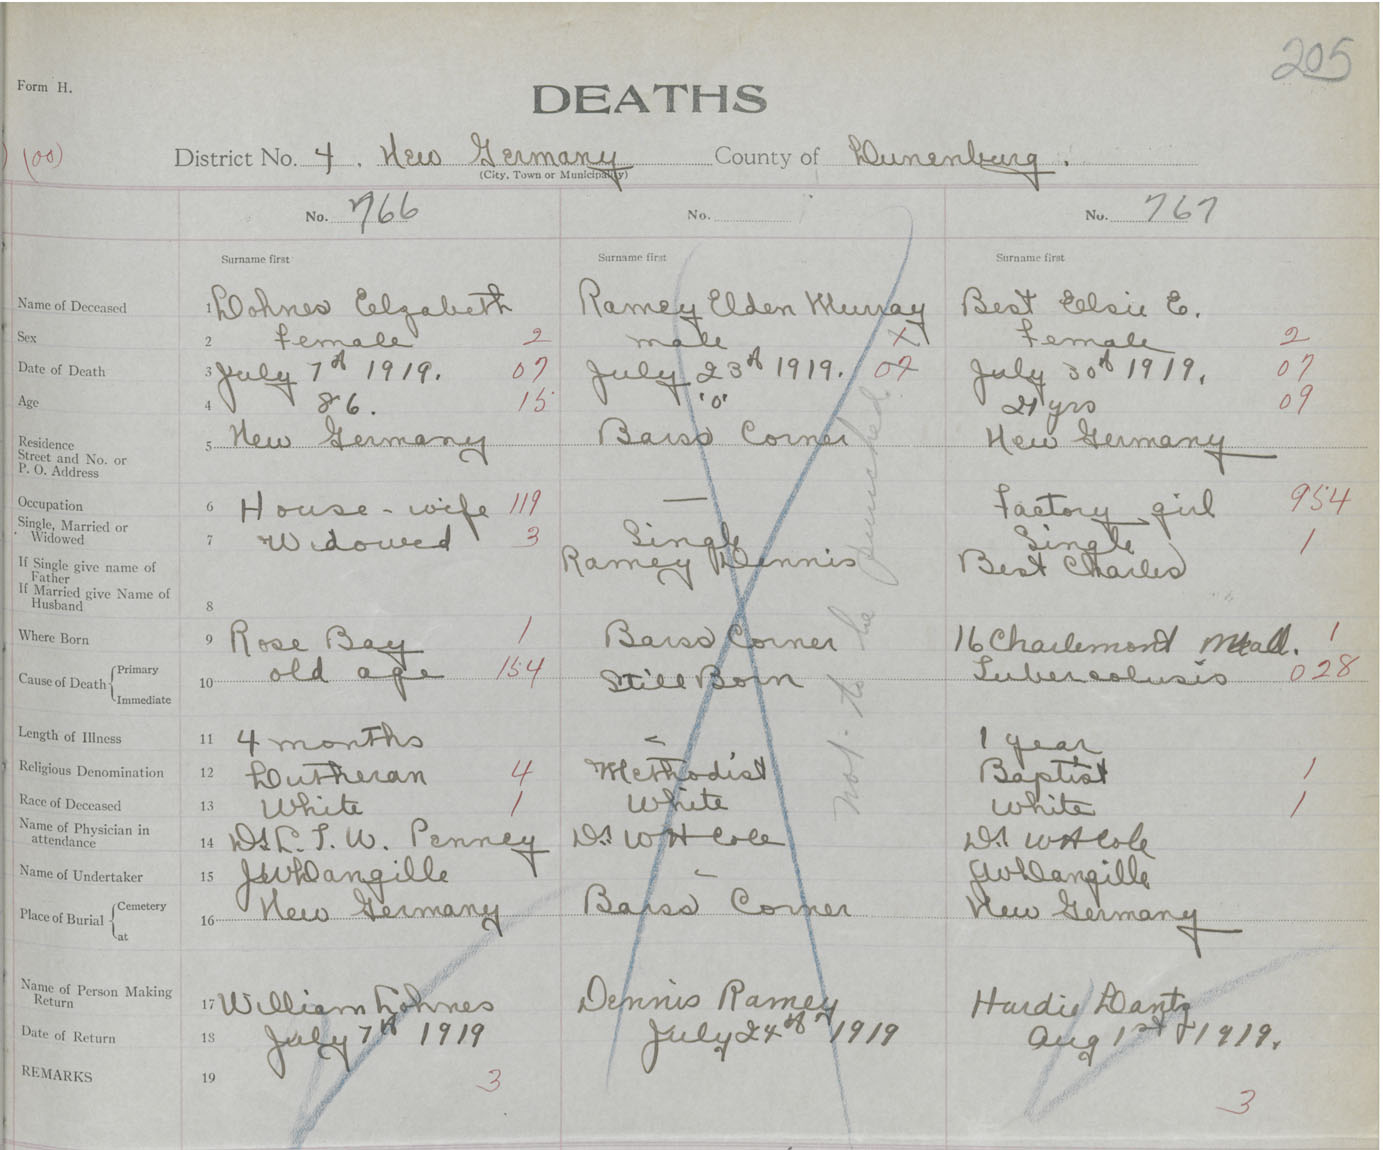 205
Form H.
DEATHS
(00) District No. 4. New Germany County of Lunenburg.
(City, Town or Municipality)
No. 766 No. No. 767
Surname first Surname first Surname first
Name of Deceased 1 Lohnes Elzabeth Ramey Elden Murray Best Elsie E.
Sex 2 Female 2 male X Female 2
Date of Death 3 July 7th 1919. 07 July 23rd 1919. 07 July 30th 1919. 07
Age 4 86. 15 "0" 21 yrs 09
Residence
Street and No. or
P. O. Address 5 New Germany Barss Corner New Germany
Occupation 6 House-wife 119 — Factory girl 954
Single, Married or
Widowed 7 Widowed 3 Single Single 1
If Single give name of
Father Ramey Dennis Best Charles
If Married give Name of
Husband 8
Where Born 9 Rose Bay 1 Barss Corner 16 Charlemont 1
Cause of Death { Primary
Immediate 10 old age 154 Still Born Tubercolusis 028
Length of Illness 11 4 months 1 year
Religious Denomination 12 Lutheran 4 Methodist Baptist 1
Race of Deceased 13 White 1 White White 1
Name of Physician in
attendance 14 Dr L. T. W. Penney Dr W H Cole Dr W H Cole
Name of Undertaker 15 Langille Langille
Place of Burial { Cemetery
at 16 New Germany Barss Corner New Germany
Name of Person Making
Return 17 William Lohnes Dennis Ramey Hardie Lantz
Date of Return 18 July 7th 1919 July 24th 1919 Aug 1st 1919.
REMARKS 19 3 3
not to be punched